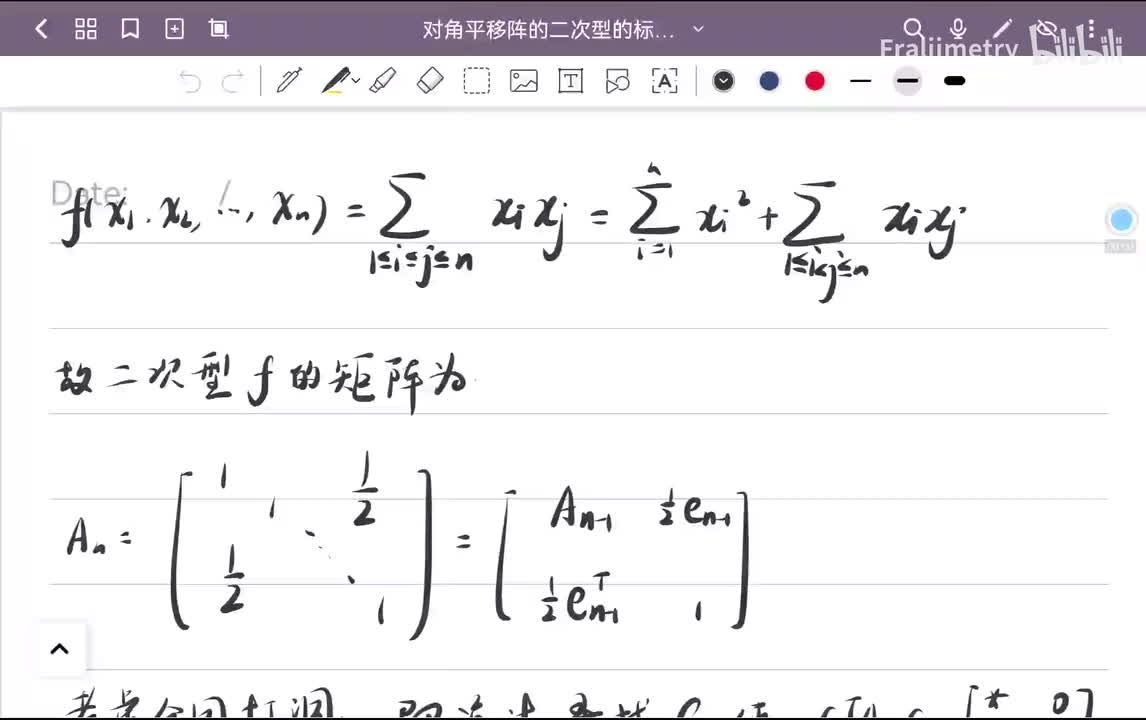 对角平移阵的二次型的标...
Fraljimetry bilibili
Date: /
f(x₁, x₂, ⋯, xₙ) = ∑_{1≤i≤j≤n} xᵢxⱼ = ∑_{i=1}^{n} xᵢ² + ∑_{1≤i<j≤n} xᵢxⱼ
故二次型 f 的矩阵为
Aₙ = [1 1 ⋱ 1, 1/2, 1/2] = [Aₙ₋₁ ½eₙ₋₁; ½eₙ₋₁ᵀ 1]
[* 0]